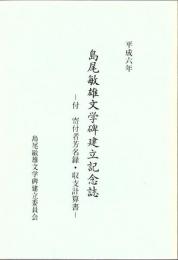 平成六年
島尾敏雄文学碑建立記念誌
－付 寄付者芳名録・収支計算書－
島尾敏雄文学碑建立委員会